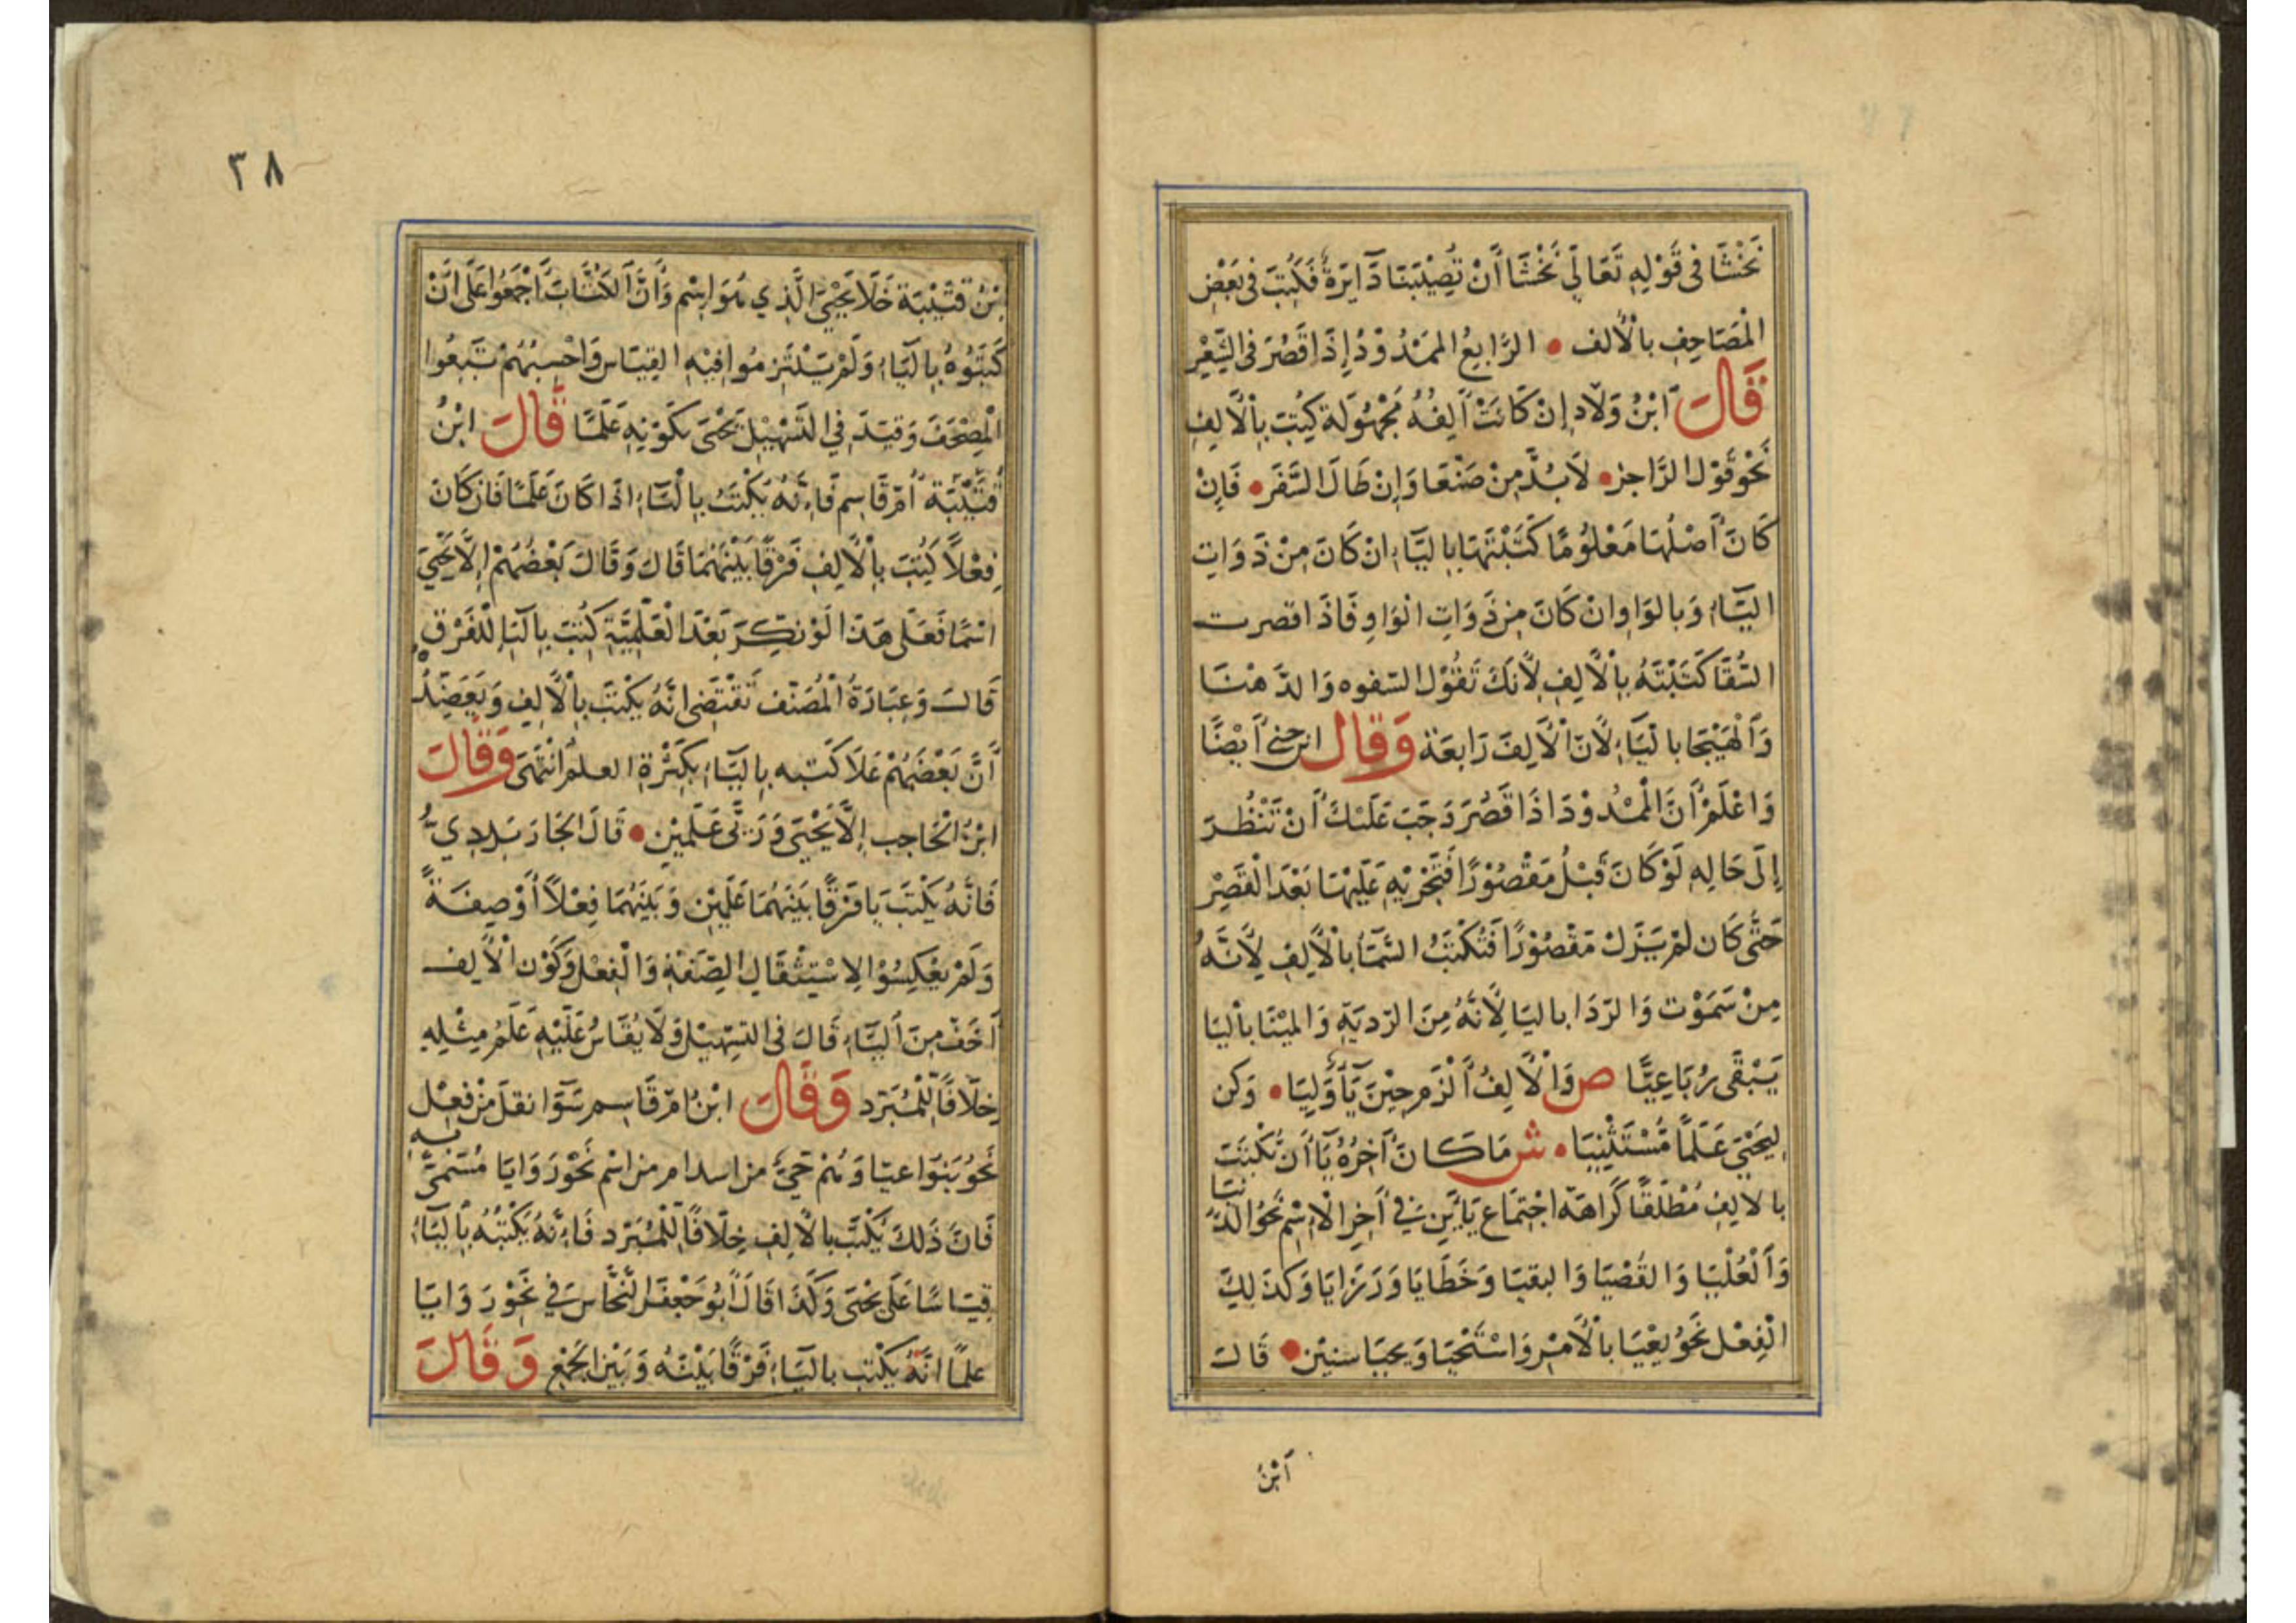 نَخْشَا فى قَوْلِهِ تَعَالَى نَخْشَا أَنْ تُصِيْبَنَا دَآايرَةٌ فَكُتِبَ فى بَعْضِ
الْمَصَاحِفِ بالْأَلف • الرَّابِعُ الممَدُوْدُ إِذَا قَصُرَ فى الشِّعْرِ
قَالَ ابْنُ وَلَّاد إِنْ كَانَتْ أَلِفُهُ مَجْهُوْلَة كُتِبَ بِالْأَلِفِ
نَحْو قَوْل الرَّاجز • لَابُدَّ مِنْ صَنْعَا وَإِنْ طَالَ السَّفَر • فَإِنْ
كَانَ أَصْلُهَا مَعْلُوْمًا كَتَبْتَهَا بِاليَّاءِ انْ كَانَ مِنْ ذَوَاتِ
اليَّاءِ وَبالوَاوِ وانْ كَانَ مِن ذَوَاتِ الوَاوِ فَاذَا قصرت
السُّقَا كَتَبْتَهُ بِالْأَلِفِ لِأَنَكَ تَقُوْل السّفوه وَالدَّهْنَا
وَالْهَيْجَا بالْيَّاءِ لِأَنَ الْأَلِفَ رَابعَة وَقال ابن جنى أَيْضًا
وَاعْلَمْ أَنَّ الْمْدُوْدَ اذَا قَصُرَ وَجَبَ عَلَيْكَ أَنْ تَنْظُرَ
إِلَى حَالِهِ لَوْ كَانَ قَبْلُ مَقْصُوْرًا فَتَجْرِيْهِ عَلَيْهَا بَعْدَ الْقَصْرِ
حَتَّى كَان لَمْ يَزَلْ مَقْصُوْرًا فَتُكْتَبُ السَّمَا بالْأَلِفِ لِأَنَّهُ
مِنْ سَمَوْت وَالرَدَا باليَا لِأَنَّهُ مِنَ الرّديَةِ وَالميْنَا بأليَا
يَبْقَى رُبَاعِيًّا ص وَالْأَلِفُ أَلْزَم حِيْنَ يَأوَّليَا • وَكن
لِيَحْيَى عَلَمًا مُسْتَثْنِيَا • ش مَا كَانَ آخِرُهُ يَآ أَنْ تُكْتَبَ
بالالِفِ مُطْلَقًا كَرَاهَة اجْتِمَاع يَآيْنِ فِي آخِرِ الْاِسْمِ نَحْوُ الدُّنيَا
وَالْعُلْيَا وَالقُصْيَا وَالبقيَا وَخَطَايَا وَرَزَايَا وَكَذَلِكَ
الْفِعْل نَحْوُ يعْيَا بالْأَمْرِ وَاسْتَحْيَا وَيحيَا سنيْن • قَالَ
اَبْنُ
٣٨
بْنُ قتَيْبَة خَلَا يَحْيَى الَّذِي هُوَ اسْم وَأَنَّ الكُتَّابَ أَجْمَعُوا عَلَى انْ
كَتَبُوْهُ بِاليَّاءِ وَلَمْ يَلْتَزِمُوا فِيْهِ القِيَاس وَاحْسِبُهُمْ تَبِعُوا
الْمصْحَفَ وَقيَدَ فِي التَّسْهِيْلِ يَحْيَى بكَوْنِهِ عَلَمًا قَالَ ابْنُ
قُتَيْبَة أُمّ قَاسِم فَاِنَهُ يَكْتبُ بِالْيَّاءِ اذَا كَانَ عَلَمًا فَان كَانَ
فِعْلاً كُتِبَ بِالْأَلِفِ فَرْقًا بَيْنَهُمَا قَالَ وَقَالَ بَعْضُهُمْ إِلَّا يَحْيَ
اسْمًا فَعَلَى هَذَا لَوْ نكِّرَ بَعْدَ الْعَلَمِيَّةِ كُتِبَ بِالَيَا لِلْفَرْقِ
قَالَ وَعِبَارَةُ الْمُصَنّف تَقْتَضِى انَّهُ يكْتبَ بِالْأَلِفِ وَيَعضِدُ
أَنَّ بَعْضَهُمْ عَلَا كَتبه بِاليَّاءِ بِكَثْرَةِ العلَم انْتَهَى وَقَالَ
ابْنُ الْحَاجِب إِلَّا يَحْيَى وَرَيَّى عَلَمَيْنِ • قَالَ الجَارَبَردِيُّ
فَانَّهُ يكْتبَ يَا فَرْقًا بَيْنَهُمَا عَلَمَيْن وَبَيْنَهُمَا فِعْلاً أَوْ صِفَةً
وَلَمْ يَعْكِسُوْا لِاسْتِثْقَال الصِّفَةِ وَالْفِعْل وَكَوْن الْأَلِف
أَخَفّ مِنَ أَليَّاءِ قَالَ فى التسْهِيْل وَلَا يُقَاسُ عَلَيْهِ عَلَمُ مِثْلِهِ
خِلَافًا لِلْمُبَرّد وَقَالَ ابْنُ امّ قَاسِم سَوَا نقلَ مِنْ فِعْل
نَحوُ يَنوَا عيَا وَ من اسْم نَحْوَرَوَايَا مُسَمًّى به
فَانَّ ذَلِكَ يُكْتَبُ بالْأَلِفِ خِلَافًا لِلْمُبَرّد فَاِنَهُ يَكْتُبُهُ بِأليَّاءِ
قِيَاسًا عَلَى يحْيَى وَكَذَا قَالَ أَبُو جَعْفَر النَّحَّاس فِي نَحْوِ رَوَايَا
علمًا انَّهُ يكْتب باليَّاءِ فَرْقًا بَيْنَه وَبَيْنَ الجَمْعِ وَقَالَ